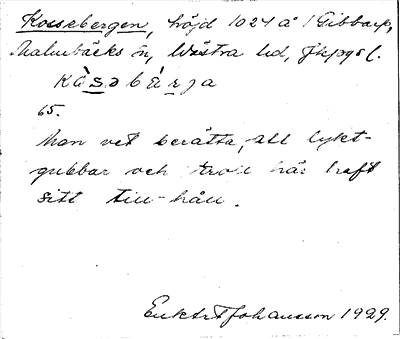 Kossebergen, höjd 1024 å 1 Gibbarp,
Malmbäcks sn, Västra hd, Jkpgs l.
kåsəbärja
65.
Man vet berätta, att lykt-
gubbar och troll här haft
sitt till-håll.
Johansson 1929.